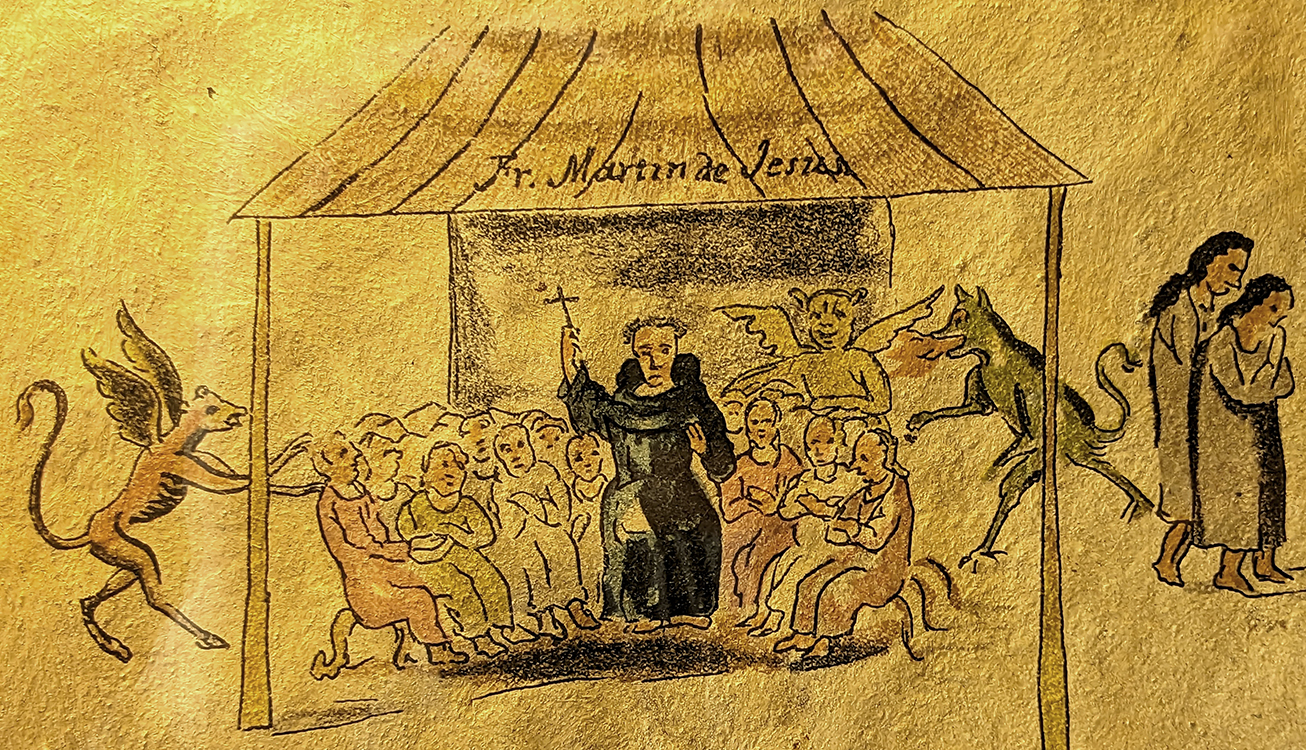 Fr. Martin de Jesus